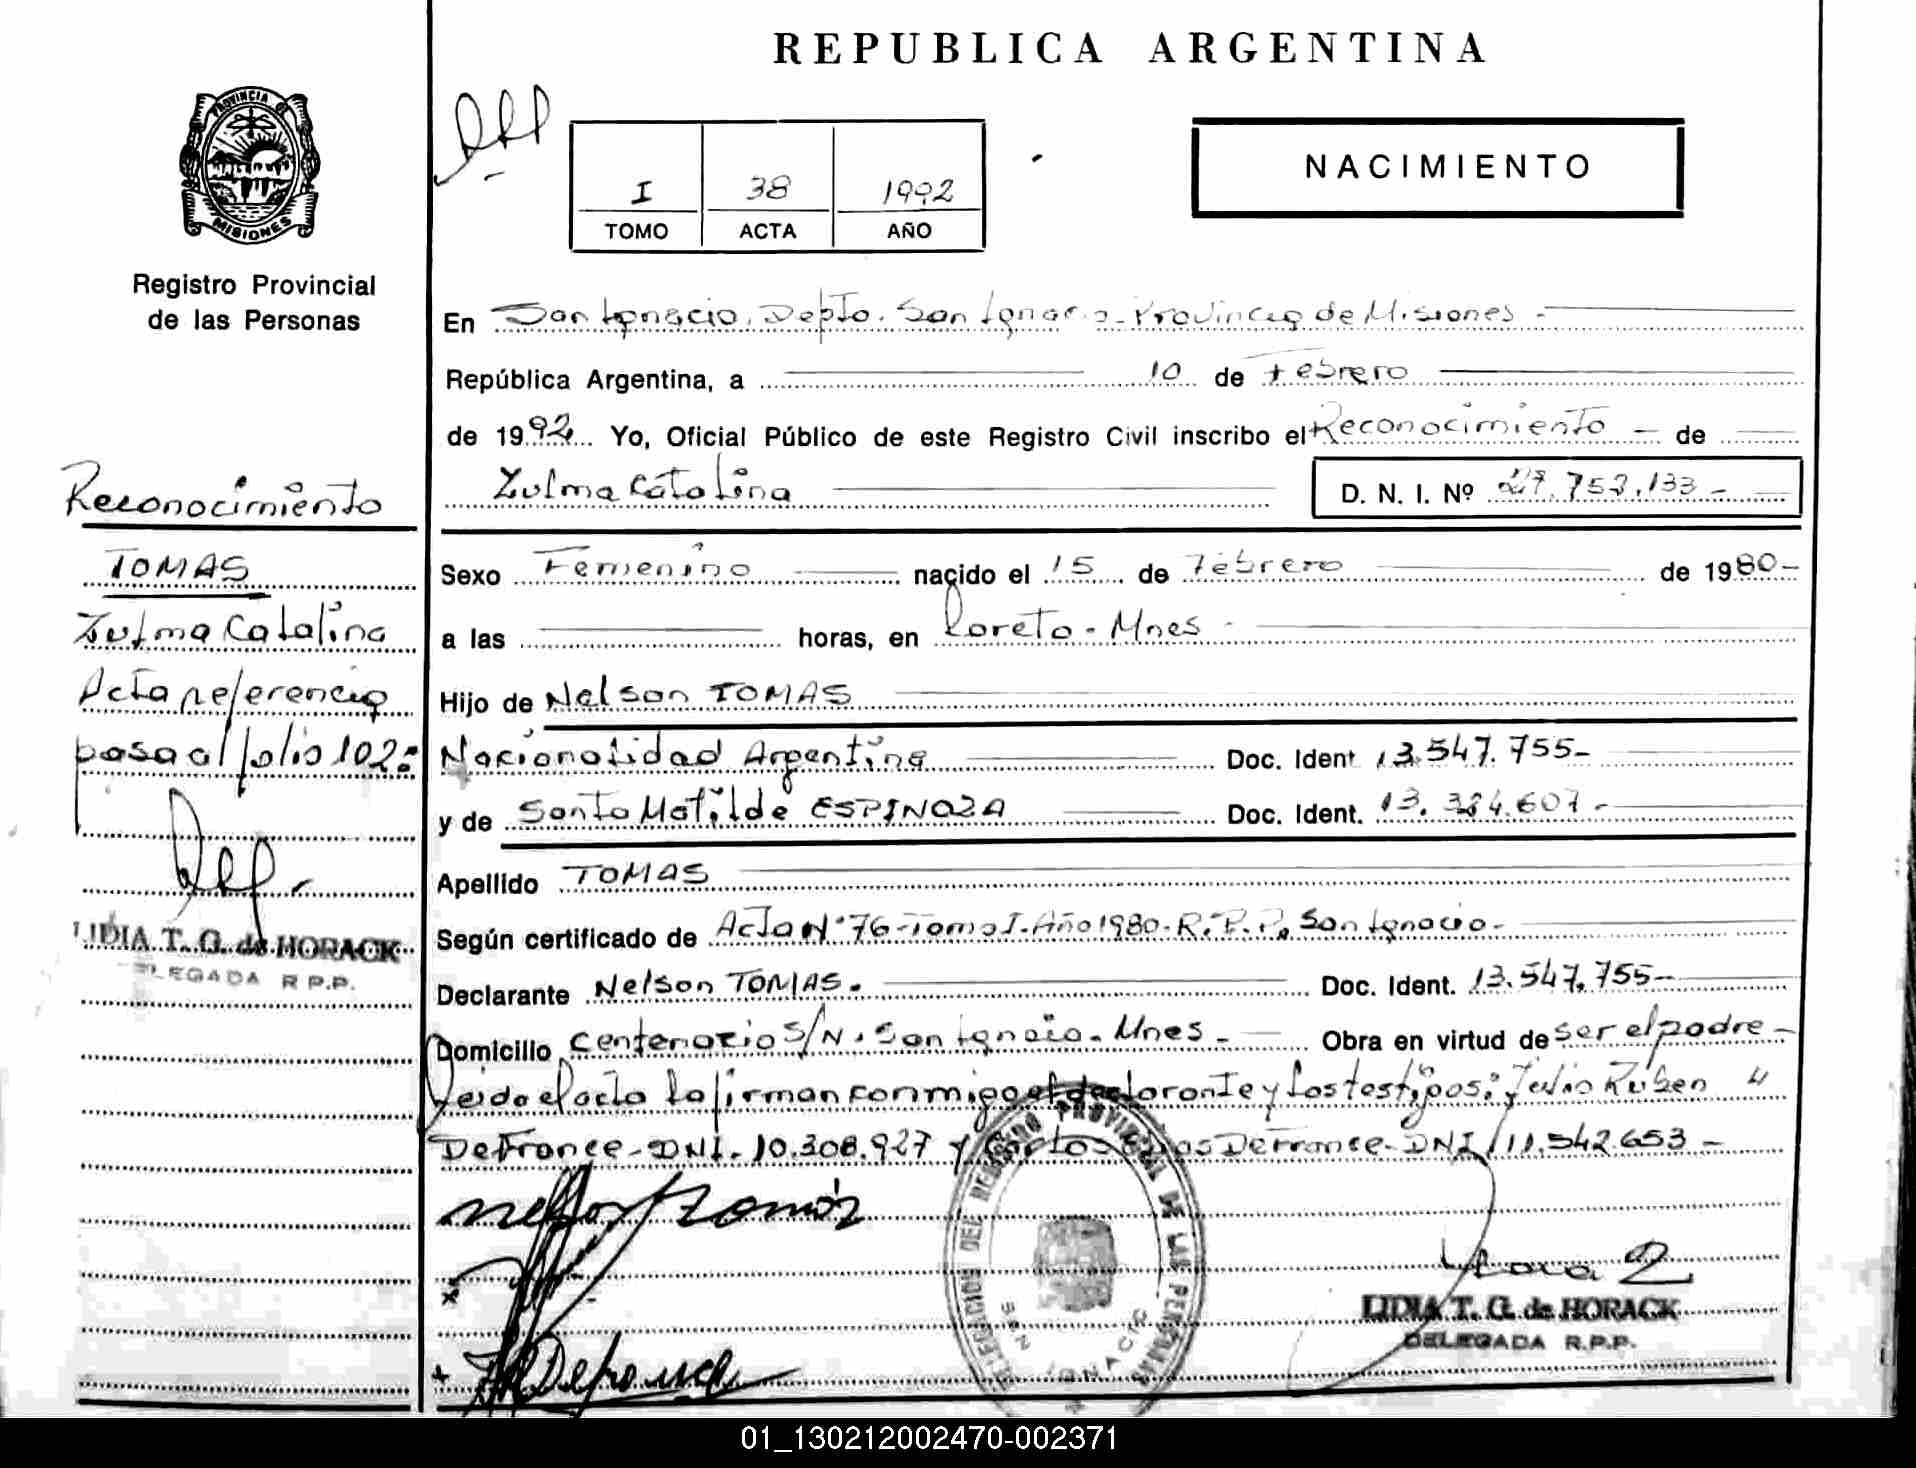 REPUBLICA ARGENTINA
PROVINCIA DE
MISIONES
Registro Provincial
de las Personas
I 38 1992
TOMO ACTA AÑO
NACIMIENTO
En San Ignacio, Depto. San Ignacio - Provincia de Misiones -
República Argentina, a 10 de Febrero
de 1992 Yo, Oficial Público de este Registro Civil inscribo el Reconocimiento - de
Zulma Catalina D. N. I. Nº 27.752.133 -
Reconocimiento
TOMAS
Zulma Catalina
Acta referencia
pasa al folio 102:
LIDIA T. G. de HORACK
DELEGADA R P.P.
Sexo Femenino nacido el 15 de Febrero de 1980-
a las horas, en Loreto - Mnes -
Hijo de Nelson TOMAS
Nacionalidad Argentina Doc. Ident 13.547.755-
y de Santa Matilde ESPINOZA Doc. Ident. 13.324.607-
Apellido TOMAS
Según certificado de Acta Nº 76-Tomo I-Año 1980-R.P.P. San Ignacio-
Declarante Nelson TOMAS. Doc. Ident. 13.547.755-
Domicilio Centenario S/N. San Ignacio. Mnes - Obra en virtud de ser el padre-
Leida el acta la firman conmigo el declarante y los testigos: Julio Ruben
De France-DNI-10.308.927 y Carlos De France-DNI 11.542.653-
Nelson Tomás
DELEGACION DEL REGISTRO PROVINCIAL DE LAS PERSONAS
SAN IGNACIO
LIDIA T. G. de HORACK
DELEGADA R.P.P.
01_130212002470-002371